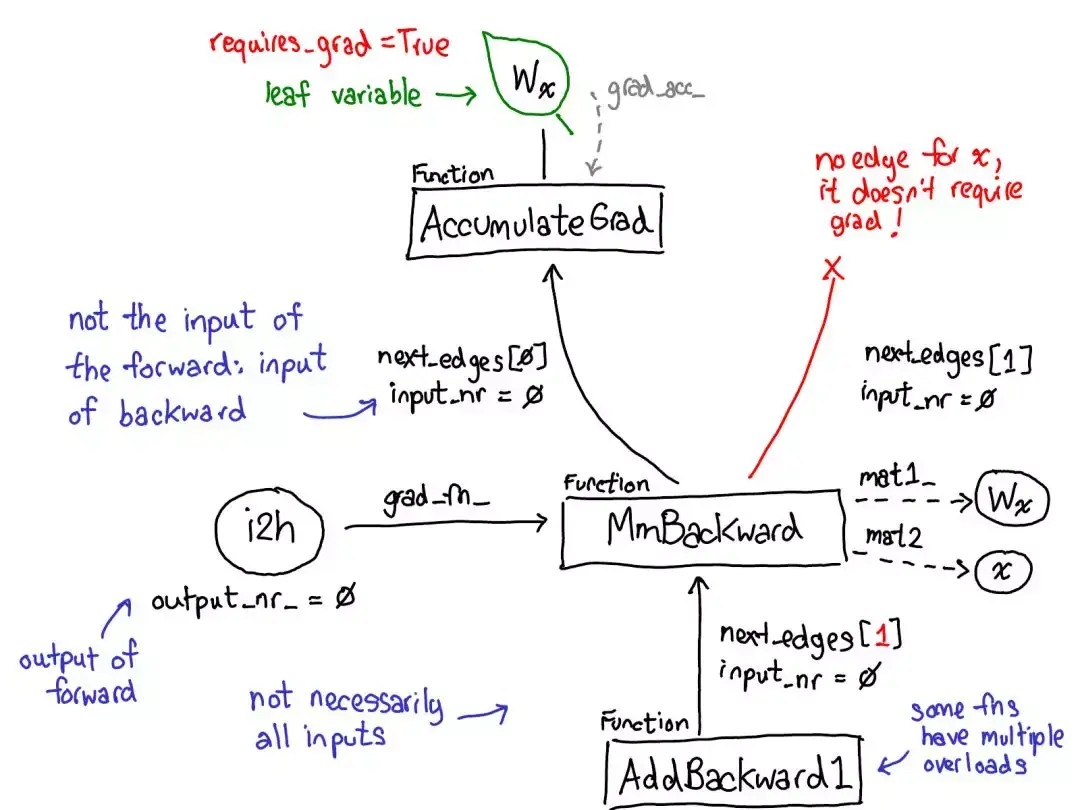 requires_grad=True
leaf variable
Wx
grad_acc_
Function
AccumulateGrad
no edge for x,
it doesn't require
grad!
x
not the input of
the forward: input
of backward
next_edges[0]
input_nr = 0
next_edges[1]
input_nr = 0
i2h
grad_fn_
output_nr_ = 0
output of
forward
Function
MmBackward
mat1_
Wx
mat2
x
next_edges[1]
input_nr = 0
not necessarily
all inputs
Function
AddBackward1
some fns
have multiple
overloads